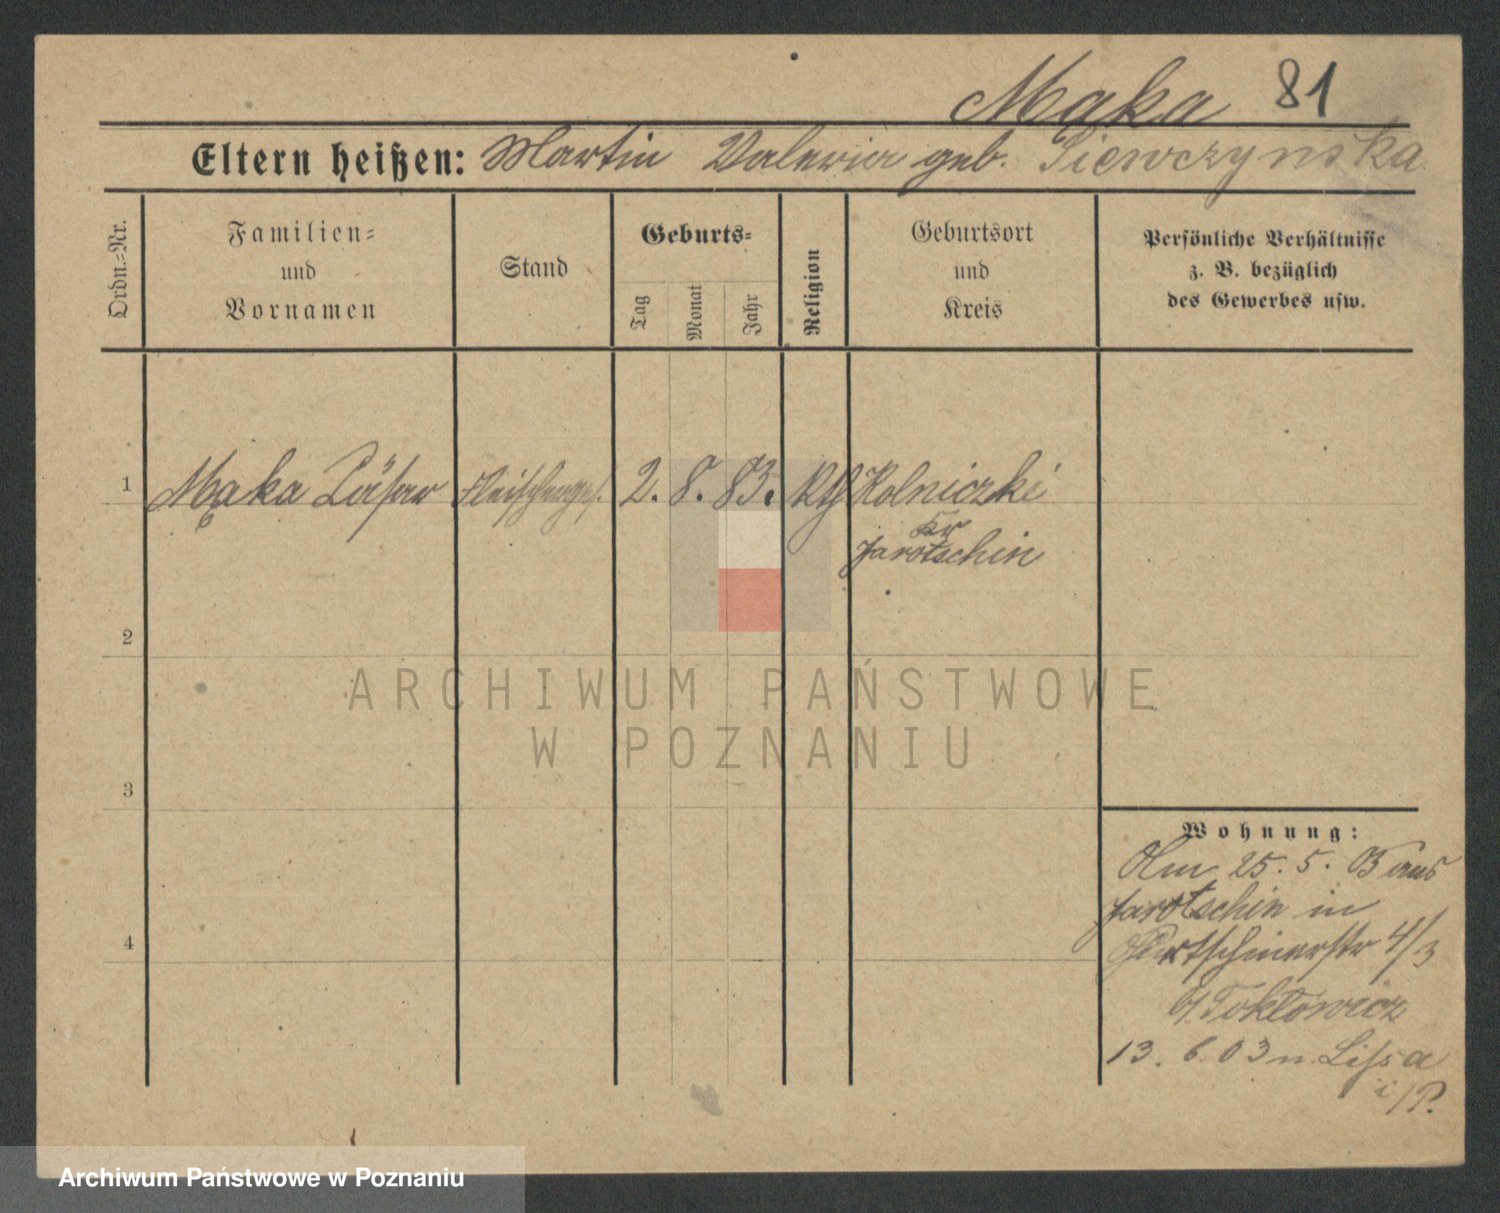 Maka 81
Eltern heißen: Martin Valeria geb. Siewczynska
Ordn.-Nr.
Familien- und Vornamen
Stand
Geburts-
Tag
Monat
Jahr
Religion
Geburtsort und Kreis
Persönliche Verhältnisse
z. B. bezüglich
des Gewerbes usw.
1 Mąka Cäsar Fleischerges. 2. 8. 83. Kth Rolniczki
Kr
Jarotschin
2
3
4
Wohnung:
Am 25. 5. 03 aus
Jarotschin in
Gurtschinerstr 4/3
b/
13. 6. 03 n. Lissa
i/P.
ARCHIWUM PAŃSTWOWE
W POZNANIU
Archiwum Państwowe w Poznaniu